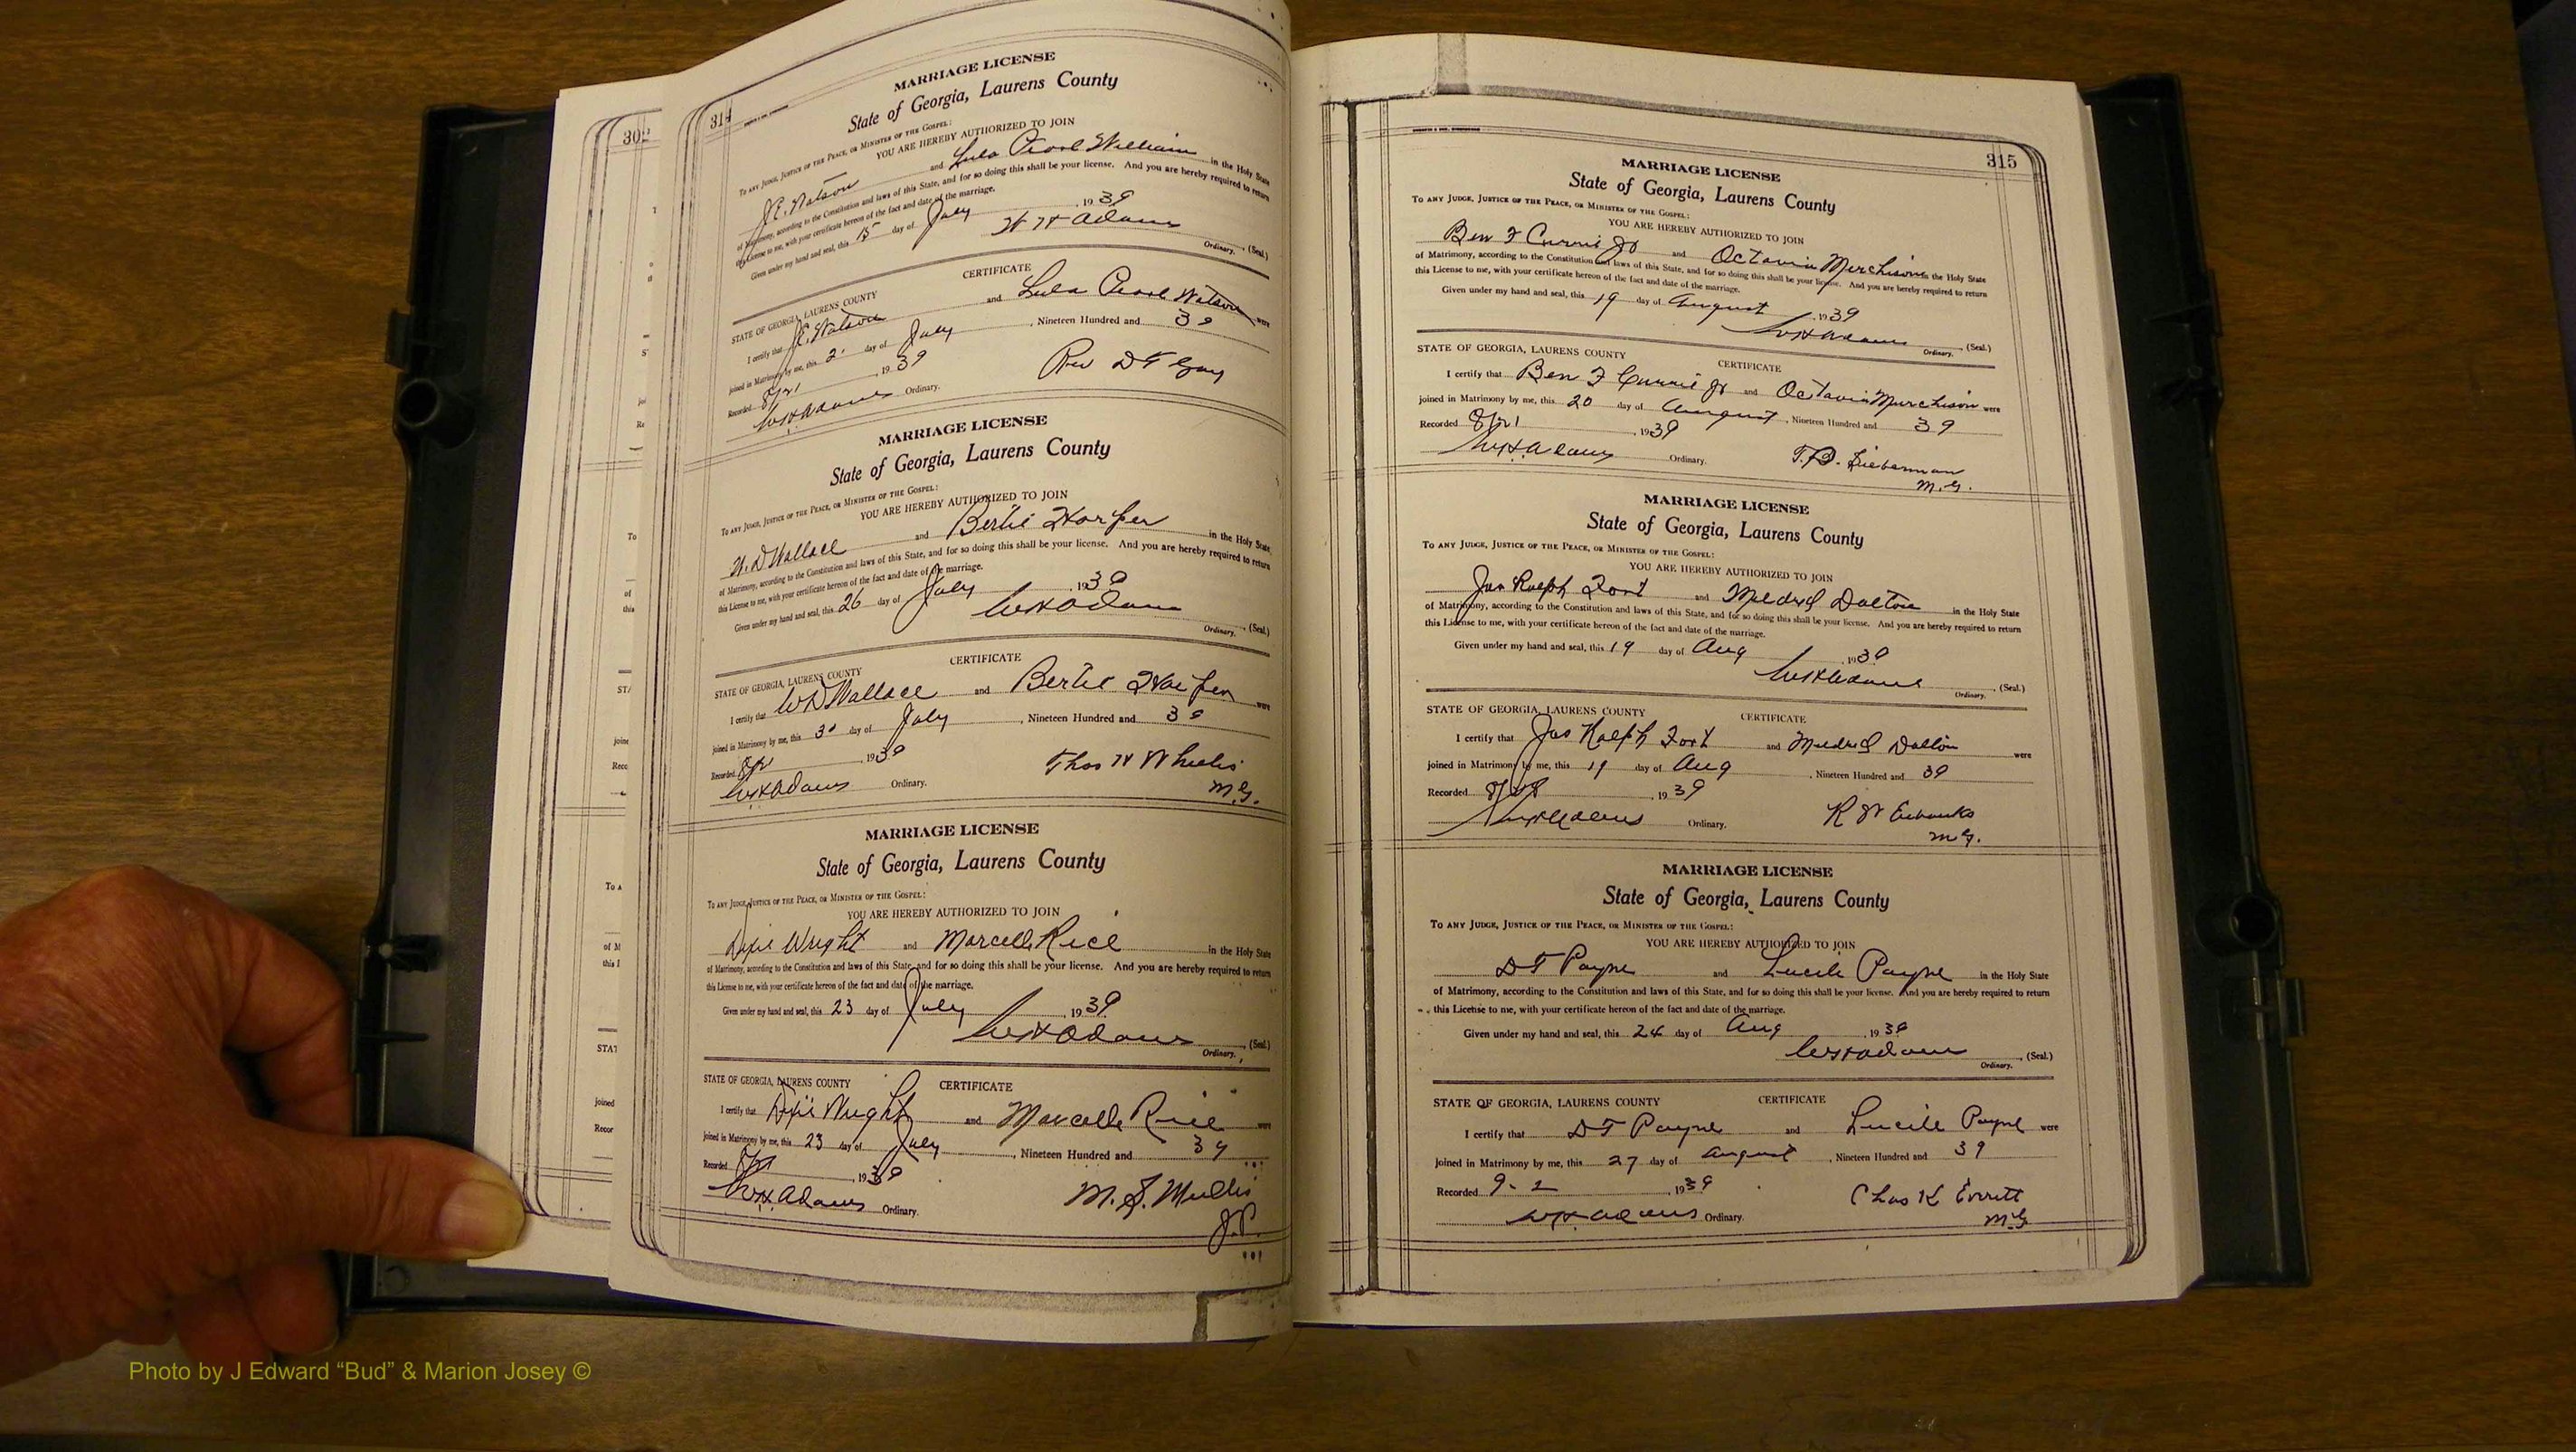 302
314
MARRIAGE LICENSE
State of Georgia, Laurens County
To any Judge, Justice of the Peace, or Minister of the Gospel:
YOU ARE HEREBY AUTHORIZED TO JOIN
J.E. Watson and Lula Pearl William in the Holy State
of Matrimony, according to the Constitution and laws of this State, and for so doing this shall be your license. And you are hereby required to return
this License to me, with your certificate hereon of the fact and date of the marriage.
Given under my hand and seal, this 15 day of July, 1939
W H Adams Ordinary. (Seal.)
CERTIFICATE
STATE OF GEORGIA, LAURENS COUNTY
I certify that J.E. Watson and Lula Pearl Watson were
joined in Matrimony by me, this day of July, Nineteen Hundred and 39
Recorded 8/21, 1939
W H Adams Ordinary.
Rev D T
MARRIAGE LICENSE
State of Georgia, Laurens County
To any Judge, Justice of the Peace, or Minister of the Gospel:
YOU ARE HEREBY AUTHORIZED TO JOIN
W. D Wallace and Bertie Harper in the Holy State
of Matrimony, according to the Constitution and laws of this State, and for so doing this shall be your license. And you are hereby required to return
this License to me, with your certificate hereon of the fact and date of the marriage.
Given under my hand and seal, this 26 day of July, 1939
W H Adams Ordinary. (Seal.)
CERTIFICATE
STATE OF GEORGIA, LAURENS COUNTY
I certify that W D Wallace and Bertie Harper were
joined in Matrimony by me, this 30 day of July, Nineteen Hundred and 39
Recorded, 1939
W H Adams Ordinary.
Thos H Wheelis
M.G.
MARRIAGE LICENSE
State of Georgia, Laurens County
To any Judge, Justice of the Peace, or Minister of the Gospel:
YOU ARE HEREBY AUTHORIZED TO JOIN
Dixie Wright and Marcelle Rice in the Holy State
of Matrimony, according to the Constitution and laws of this State, and for so doing this shall be your license. And you are hereby required to return
this License to me, with your certificate hereon of the fact and date of the marriage.
Given under my hand and seal, this 23 day of July, 1939
W H Adams Ordinary. (Seal.)
STATE OF GEORGIA, LAURENS COUNTY CERTIFICATE
I certify that Dixie Wright and Marcelle Rice were
joined in Matrimony by me, this 23 day of July, Nineteen Hundred and 39
Recorded, 1939
W H Adams Ordinary.
M. S. Mullis
J.P.
315
MARRIAGE LICENSE
State of Georgia, Laurens County
To any Judge, Justice of the Peace, or Minister of the Gospel:
YOU ARE HEREBY AUTHORIZED TO JOIN
Ben F Currie Jr and Octavia Murchison in the Holy State
of Matrimony, according to the Constitution and laws of this State, and for so doing this shall be your license. And you are hereby required to return
this License to me, with your certificate hereon of the fact and date of the marriage.
Given under my hand and seal, this 19 day of August, 1939
W H Adams Ordinary. (Seal.)
STATE OF GEORGIA, LAURENS COUNTY CERTIFICATE
I certify that Ben F Currie Jr and Octavia Murchison were
joined in Matrimony by me, this 20 day of August, Nineteen Hundred and 39
Recorded 8/21, 1939
W H Adams Ordinary.
T.D. Lieberman
M.G.
MARRIAGE LICENSE
State of Georgia, Laurens County
To any Judge, Justice of the Peace, or Minister of the Gospel:
YOU ARE HEREBY AUTHORIZED TO JOIN
Jas Ralph Fort and Mildred Dalton in the Holy State
of Matrimony, according to the Constitution and laws of this State, and for so doing this shall be your license. And you are hereby required to return
this License to me, with your certificate hereon of the fact and date of the marriage.
Given under my hand and seal, this 19 day of Aug, 1939
W H Adams Ordinary. (Seal.)
STATE OF GEORGIA, LAURENS COUNTY CERTIFICATE
I certify that Jas Ralph Fort and Mildred Dalton were
joined in Matrimony by me, this 19 day of Aug, Nineteen Hundred and 39
Recorded 8/28, 1939
W H Adams Ordinary.
R W Eubanks
M.G.
MARRIAGE LICENSE
State of Georgia, Laurens County
To any Judge, Justice of the Peace, or Minister of the Gospel:
YOU ARE HEREBY AUTHORIZED TO JOIN
D T Payne and Lucile Payne in the Holy State
of Matrimony, according to the Constitution and laws of this State, and for so doing this shall be your license. And you are hereby required to return
this License to me, with your certificate hereon of the fact and date of the marriage.
Given under my hand and seal, this 24 day of Aug, 1939
W H Adams Ordinary. (Seal.)
STATE OF GEORGIA, LAURENS COUNTY CERTIFICATE
I certify that D T Payne and Lucile Payne were
joined in Matrimony by me, this 27 day of August, Nineteen Hundred and 39
Recorded 9-2 1939
W H Adams Ordinary.
Chas K Everett
M.G.
Photo by J Edward “Bud” & Marion Josey ©